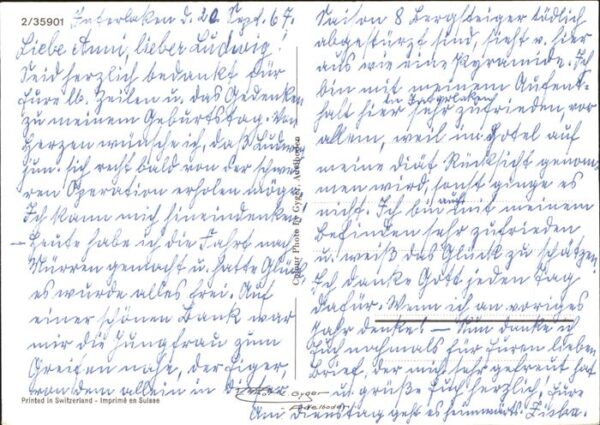 2/35901
Interlaken d. 20. Sept. 67.
Liebe Anni, lieber Ludwig!
Seid herzlich bedankt für
Eure lb. Zeilen u. das Gedenken
zu meinem Geburtstag. Von
Herzen wünsche ich, daß Ludw.
sich recht bald von der schwe-
ren Operation erholen möge.
Ich kann mich hineindenken.
– Heute habe ich die Fahrt nach
Mürren gemacht u. hatte Glück
es wurde alles frei. Auf
einer schönen Bank war
mir die Jungfrau zum
Greifen nahe, der Eiger,
von dem allein in dieser
Saison 8 Bergsteiger tödlich
abgestürzt sind, sieht v. hier
aus wie eine Pyramide. Ich
bin mit meinem Aufent-
halt hier in Interlaken sehr zufrieden, vor
allem, weil im Hotel auf
meine Diät Rücksicht genom-
men wird, sonst ginge es
nicht. Ich bin auch mit meinem
Befinden sehr zufrieden
u. weiß das Glück zu schätzen
Ich danke Gott jeden Tag
dafür. Wenn ich an voriges
Jahr denke! – Nun danke ich
Euch nochmals für Euren lieben
Brief, der mich sehr gefreut hat
u. grüße Euch herzlich, Eure
Am Dienstag geht es heimwärts.
Colour Photo by Gyger, Adelboden
Gyger
Adelboden
Printed in Switzerland - Imprimé en Suisse